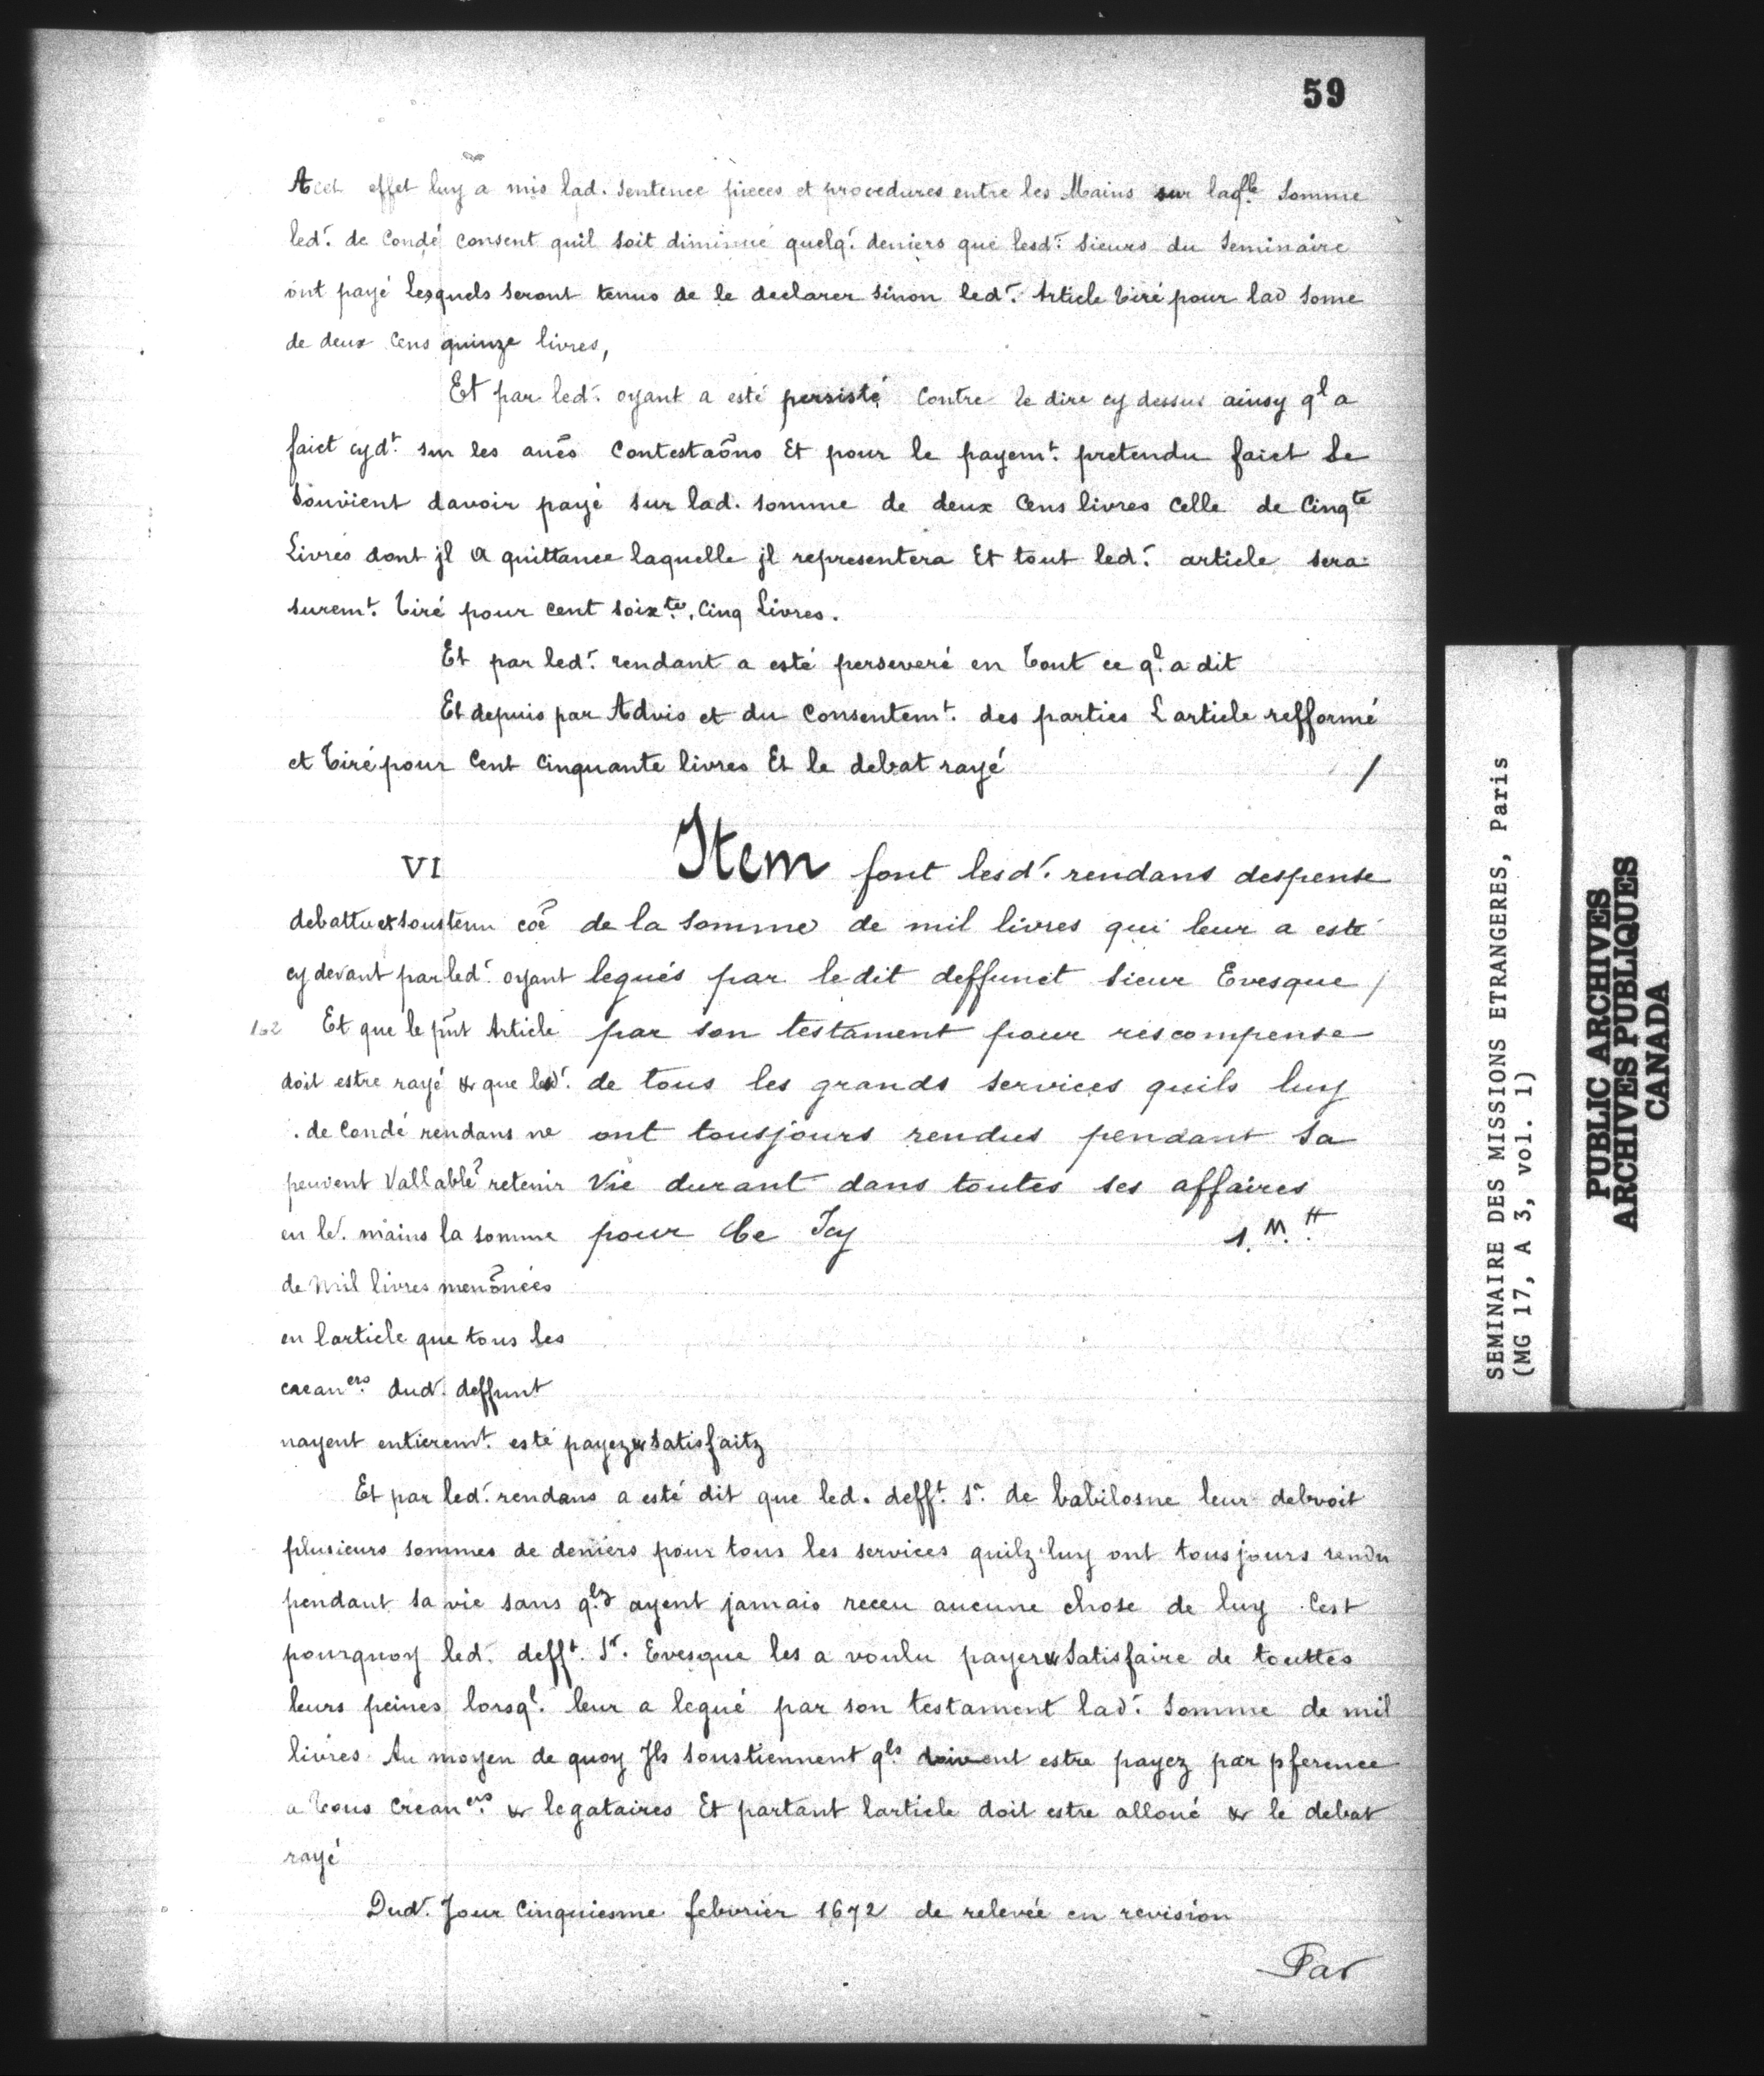 59
A cet effet luy a mis lad. Sentence pieces et procedures entre les Mains sur laqlle Somme
led.r de Condé consent quil soit diminué quelq.r deniers que lesd.r Sieurs du Seminaire
ont payé Lesquels seront tenus de le declarer sinon led.r Article tiré pour lad some
de deux Cens quinze livres,
Et par led.r oyant a esté persisté Contre le dire cy dessus ainsy ql a
faict cyd.t sur les auẽs Contestaõns Et pour le payem.t pretendu faict Se
Souvient davoir payé sur lad. somme de deux Cens livres Celle de Cinqte
Livres dont jl a quittance laquelle jl representera Et tout led.r article sera
surem.t tiré pour cent soixte. Cinq Livres.
Et par led.r rendant a esté perseveré en tout ce q.l a dit
Et depuis par Advis et du Consentem.t des parties L article refformé
et tiré pour Cent Cinquante livres Et le debat rayé /
VI
debattu & soustenu coẽ
cy devant par led.r oyant
102 Et que le pñt Article
doit estre rayé & que lesd.r
. de Condé rendans ne
peuvent Vallable retenir
en le.r mains la somme
de mil livres menõnees
en l'article que tous les
creaners dud. deffunt
nayent entierem.t esté payez & Satisfaitz
Item font lesd.r rendans despense
de la Somme de mil livres qui leur a esté
legués par ledit deffunct Sieur Evesque /
par son testament pour rescompense
de tous les grands services quils luy
ont tousjours rendus pendant sa
Vie durant dans toutes ses affaires
pour Ce Icy 1.M.tt
Et par led.r rendans a esté dit que led. deff.t S.r de babilosne leur debvoit
plusieurs sommes de deniers pour tous les services quilz luy ont tousjours rendu
pendant sa vie sans q.lz ayent jamais receu aucune chose de luy Cest
pourquoy led. deff.t S.r Evesque les a voulu payer & Satisfaire de touttes
leurs peines lorsq.l leur a legué par son testament lad.r Somme de mil
livres Au moyen de quoy Ils soustiennent qls doivent estre payez par pference
a tous Creaners & legataires Et partant larticle doit estre alloué & le debat
rayé
Dud. Jour Cinquiesme febvrier 1672 de relevée en revision
Par
SEMINAIRE DES MISSIONS ETRANGERES, Paris
(MG 17, A 3, vol. 1)
PUBLIC ARCHIVES
ARCHIVES PUBLIQUES
CANADA